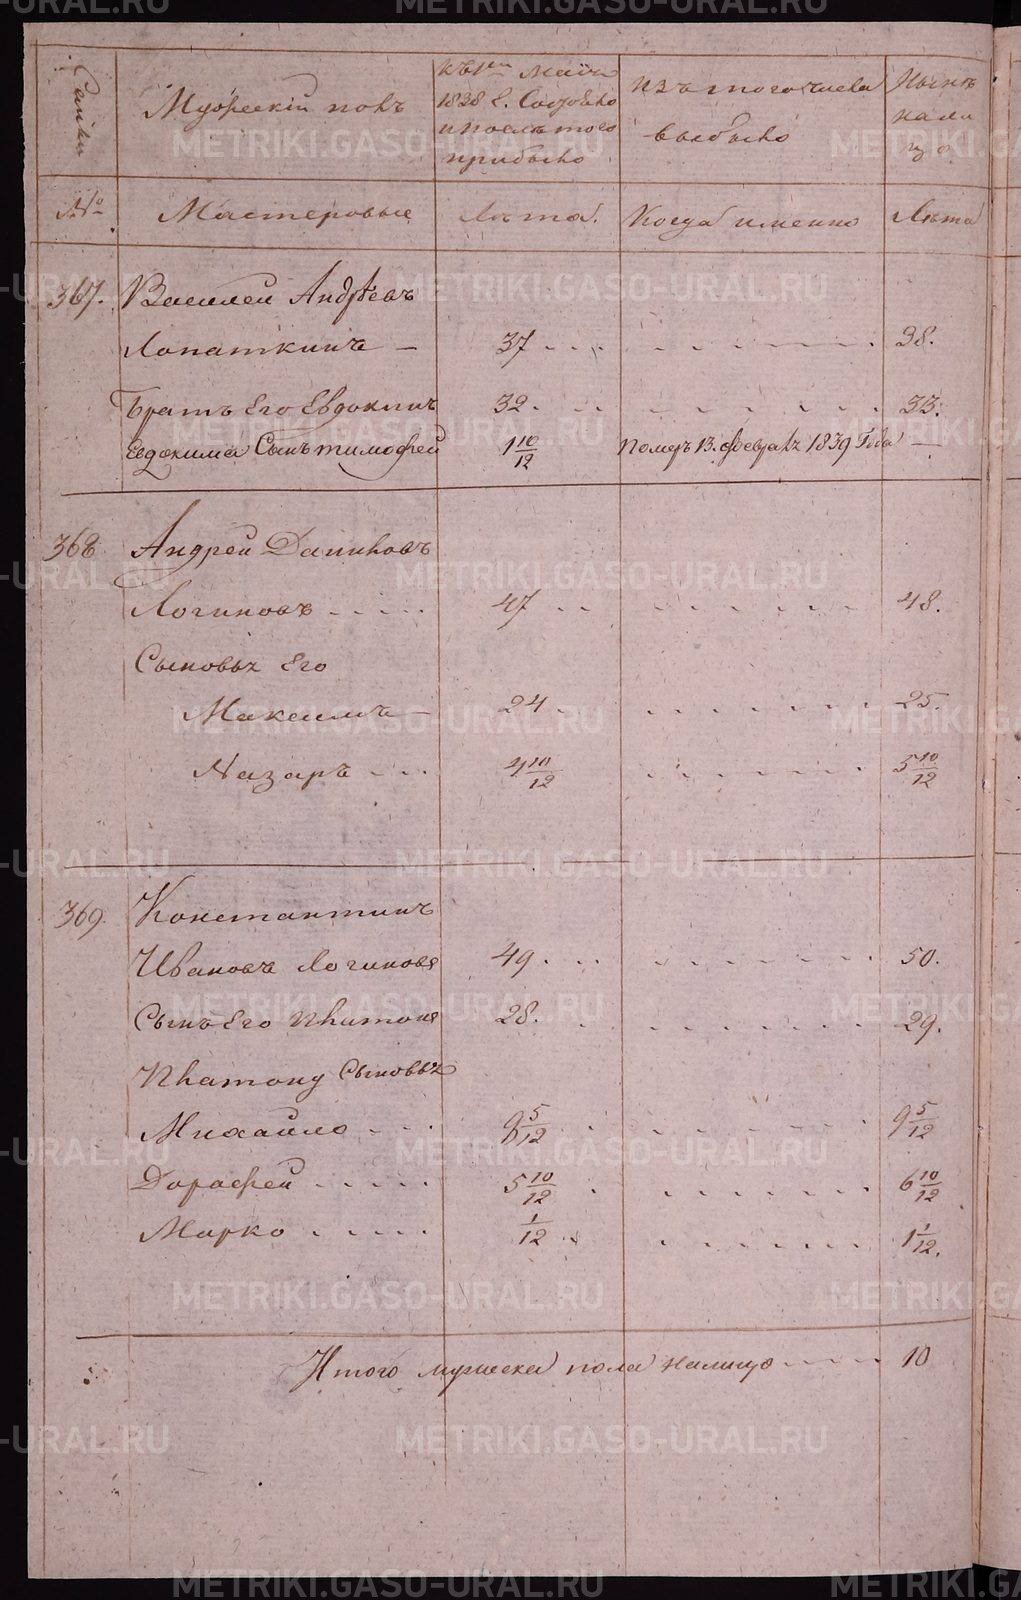 Семьи
Мужеский полъ
Къ 1му Маия
1838 г. Состояло
и послѣ того
прибыло
Изъ того числа
выбыло
Нынѣ
на ли
цо
№
Мастеровые
Лѣта.
Когда именно
Лѣта
367. Василей Андрѣевъ
Лопаткинъ — 37 38.
Братъ Его Евдокимъ 32. 33.
Евдокима Сынъ тимофей 1 10/12 Померъ 13. февраля 1839 Года —
368. Андрей Даниловъ
Логиновъ 47 48.
Сыновья Его
Максимъ — 24 25.
Назаръ 4 10/12 5 10/12
369. Константинъ
Ивановъ Логиновъ 49. 50.
Сынъ Его Платонъ 28. 29.
Платону Сыновья
Михайло 8 5/12 9 5/12
Дорофей 5 10/12 6 10/12
Марко 1/12 1 1/12.
Итого мужеска пола налицо 10
METRIKI.GASO-URAL.RU